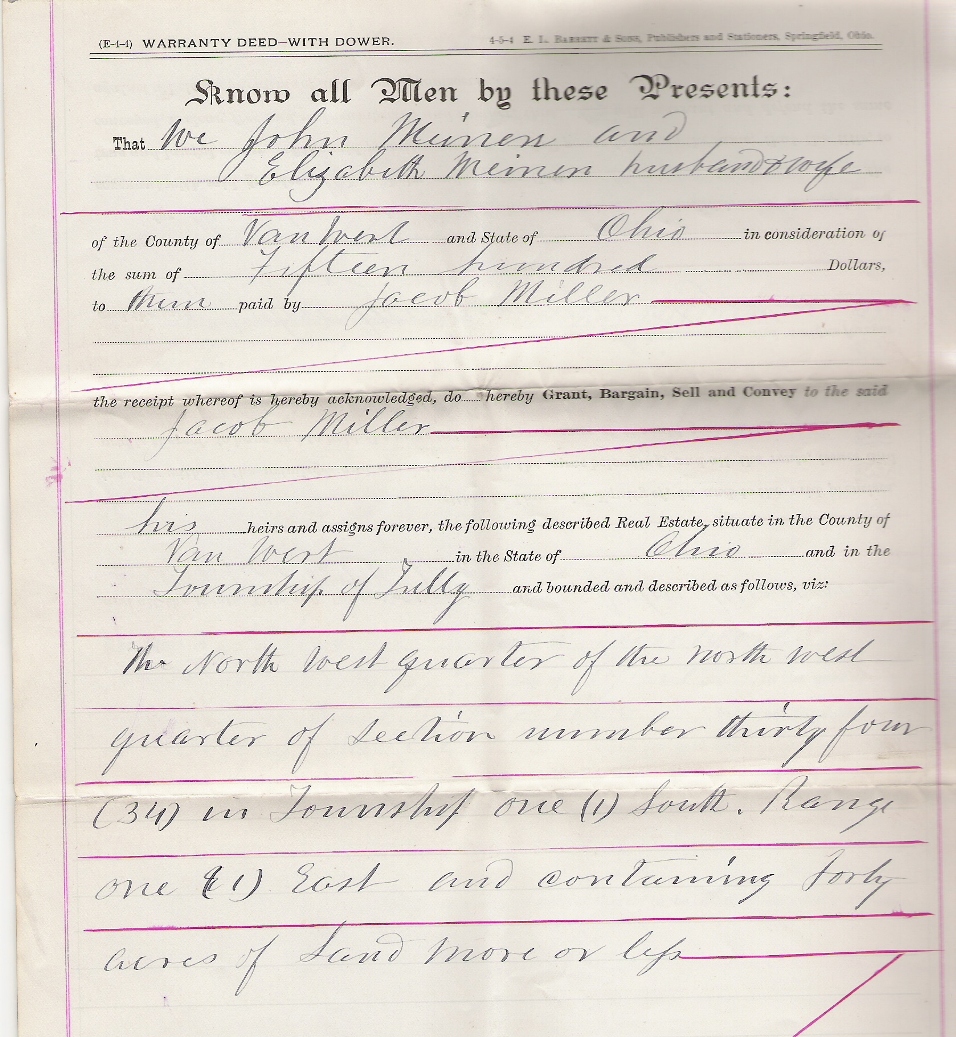 (E-4-4) WARRANTY DEED—WITH DOWER. 4-5-4 E. L. BARRETT & SONS, Publishers and Stationers, Springfield, Ohio.
Know all Men by these Presents:
That We John Meinen and
Elizabeth Meinen husband & wife
of the County of Van Wert and State of Ohio in consideration of
the sum of Fifteen hundred Dollars,
to them paid by Jacob Miller
the receipt whereof is hereby acknowledged, do hereby Grant, Bargain, Sell and Convey to the said
Jacob Miller
his heirs and assigns forever, the following described Real Estate, situate in the County of
Van Wert in the State of Ohio and in the
Township of Tully and bounded and described as follows, viz:
The North West quarter of the north west
quarter of section number thirty four
(34) in Township one (1) South. Range
one (1) East and containing forty
acres of Land more or less